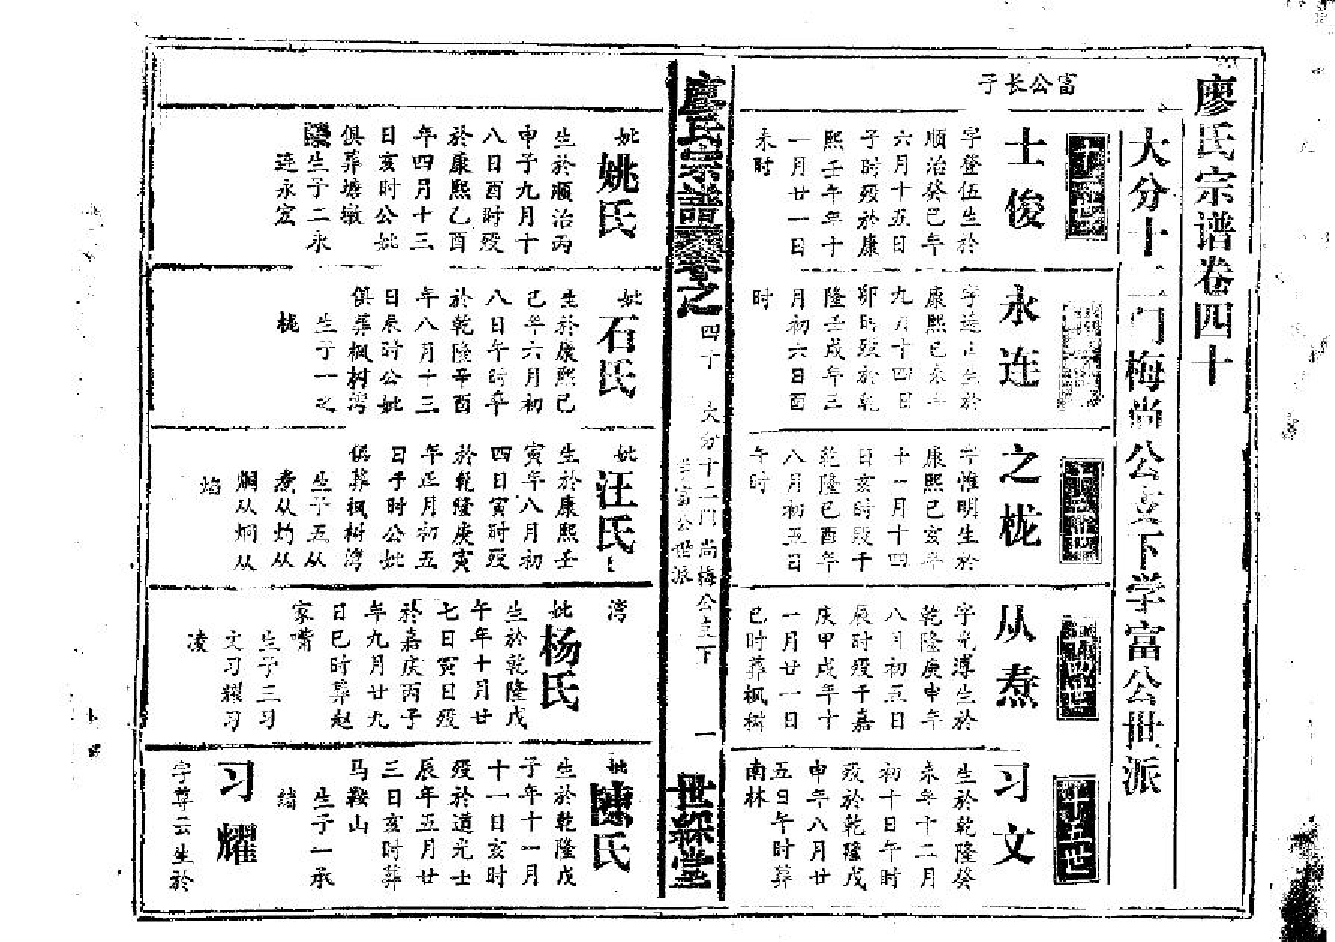 廖氏宗谱卷四十
大分十二门梅尚公支下学富公世派
富公长子
士俊
字登伍生於
顺治癸巳年
六月十五日
子时殁於康
熙壬午年十
一月廿一日
未时
妣
姚氏
生於顺治丙
申子九月十
八日酉时殁
於康熙乙酉
年四月十三
日亥时公妣
俱葬塘墩
生子二永
连永宏
永连
字连正生於
康熙己未年
九月十四日
卯时殁於乾
隆壬戌年三
月初六日酉
时
妣
石氏
生於康熙己
己年六月初
八日午时卒
於乾隆辛酉
年八月十三
日辰时公妣
俱葬枫树湾
生子一之
栊
之栊
字惟明生於
康熙己亥年
十一月十四
日亥时殁于
乾隆己酉年
八月初五日
午时
妣
汪氏
生於康熙壬
寅年八月初
四日寅时殁
於乾隆庚寅
年正月初五
日子时公妣
俱葬枫树湾
生子五从
焘从灼从
烱从炯从
焰
从焘
字光溥生於
乾隆庚申年
八月初五日
辰时殁于嘉
庆甲戌年十
一月廿一日
巳时葬枫树
湾
妣
杨氏
生於乾隆戊
午年十月廿
七日寅日殁
於嘉庆丙子
年九月廿九
日巳时葬赵
家嘴
生子三习
文习耀习
凌
十五世
习文
生於乾隆癸
未年十二月
初十日午时
殁於乾隆戊
申年八月廿
五日午时葬
南林
妣
陳氏
生於乾隆戊
子年十一月
十一日亥时
殁於道光士
辰年五月廿
三日亥时葬
马鞍山
生子一承
绪
习耀
字尊云生於
廖氏宗譜卷之
四十
大分十二门尚梅公支下
学富公世派
一
世綵堂